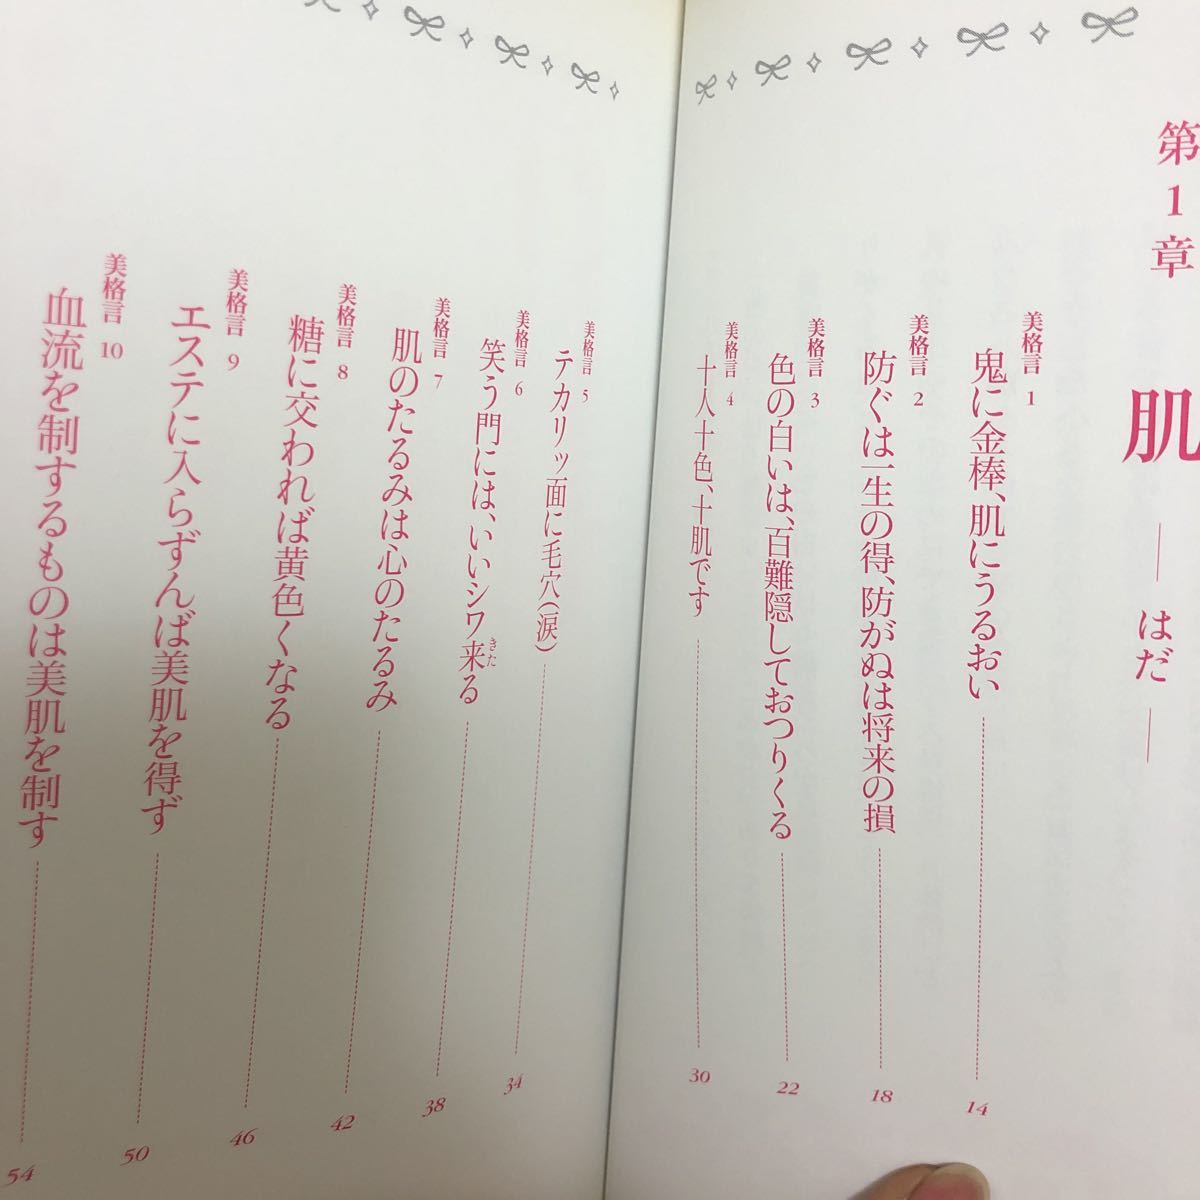 第1章 肌 ―はだ―
美格言 1
鬼に金棒、肌にうるおい 14
美格言 2
防ぐは一生の得、防がぬは将来の損 18
美格言 3
色の白いは、百難隠しておつりくる 22
美格言 4
十人十色、十肌です 30
美格言 5
テカリッ面に毛穴(涙) 34
美格言 6
笑う門には、いいシワ来る 38
きた
美格言 7
肌のたるみは心のたるみ 42
美格言 8
糖に交われば黄色くなる 46
美格言 9
エステに入らずんば美肌を得ず 50
美格言 10
血流を制するものは美肌を制す 54